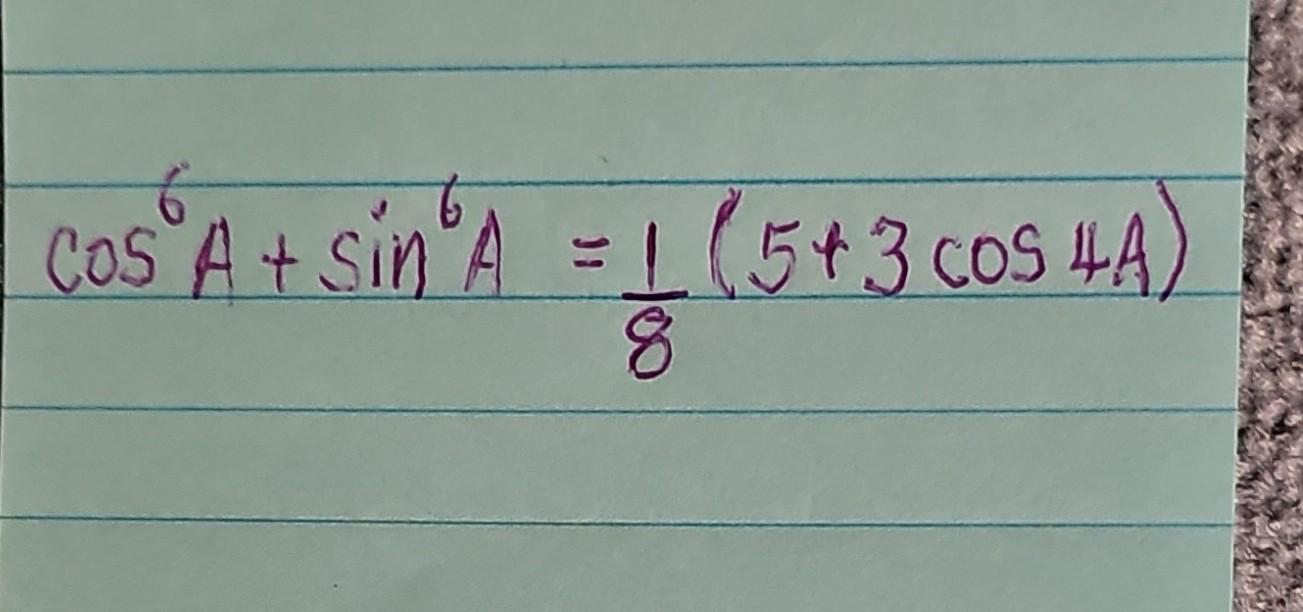 cos⁶A + sin⁶A = 1/8 (5+3 cos 4A)